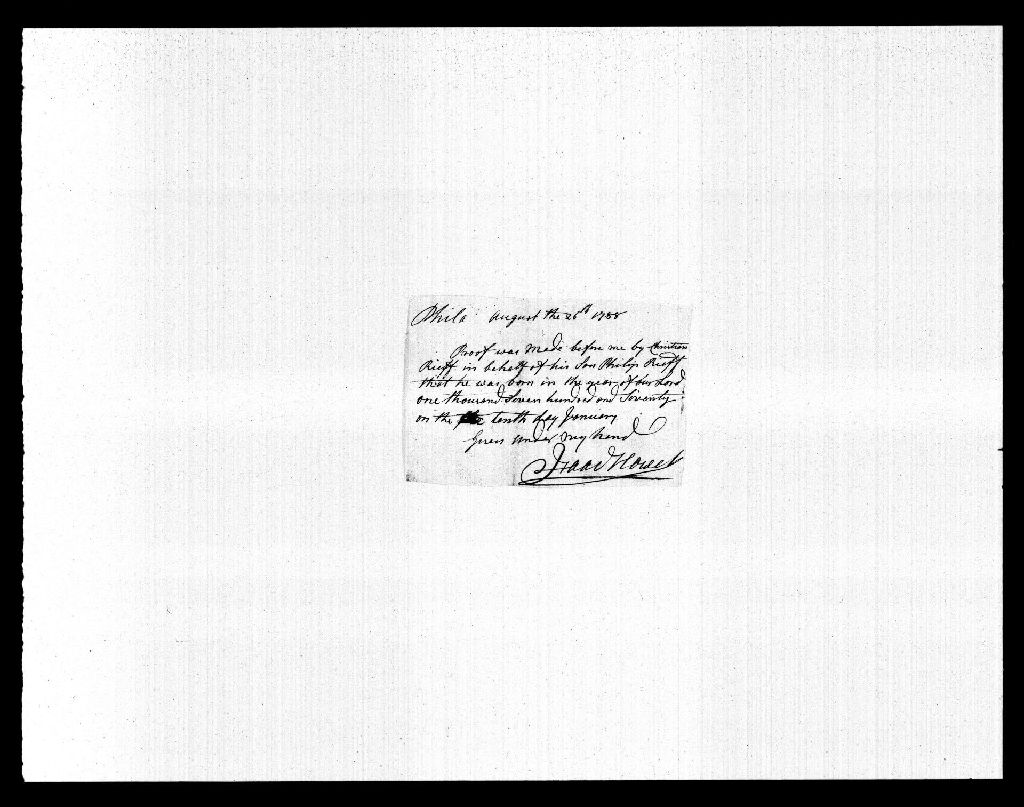 Phila August the 26th 1788
Proof was Made before me by Christian
Rieff in behalf of his Son Philip Rieff
that he was born in the year of our Lord
one thousand Seven hundred and Seventy
on the tenth day January
Given under my hand
Isaac Howell